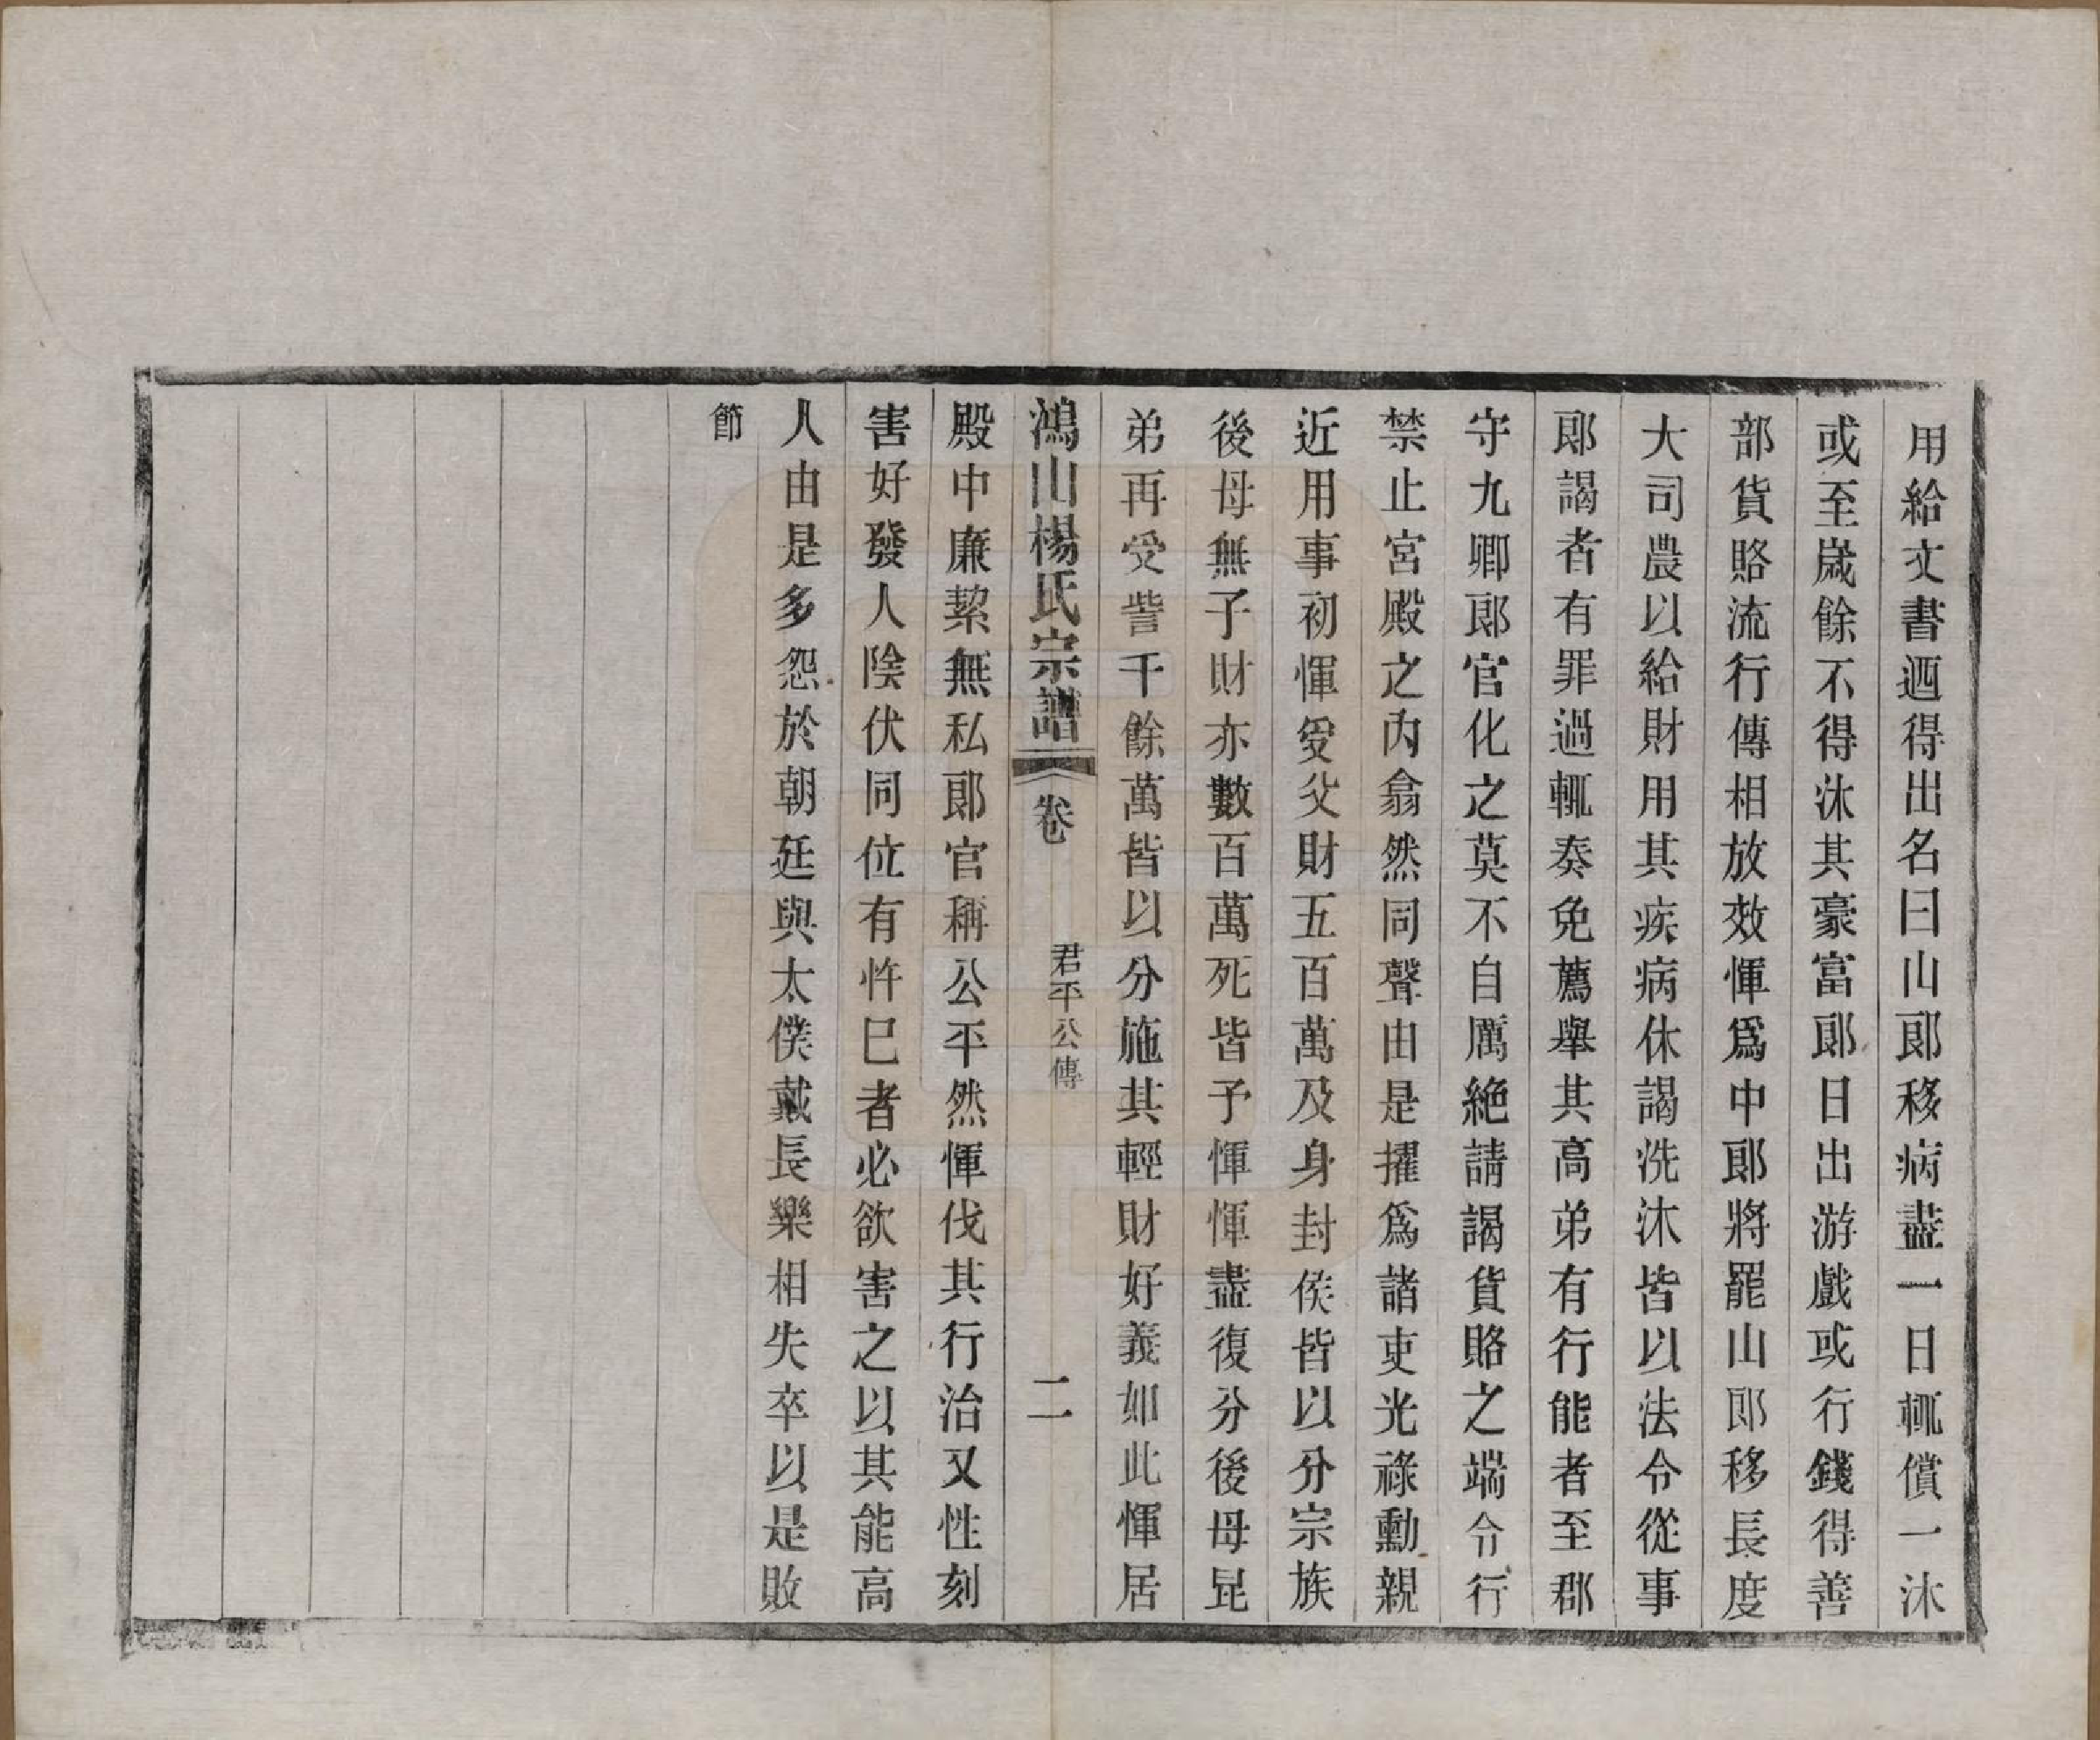 用給文書迺得出名曰山郎移病盡一日輒償一沐
或至歲餘不得沐其豪富郎日出游戲或行錢得善
部貨賂流行傳相放效惲爲中郎將罷山郎移長度
大司農以給財用其疾病休謁洗沐皆以法令從事
郎謁者有罪過輒奏免薦舉其高弟有行能者至郡
守九卿郎官化之莫不自厲絶請謁貨賂之端令行
禁止宮殿之內翕然同聲由是擢爲諸吏光祿勳親
近用事初惲受父財五百萬及身封侯皆以分宗族
後母無子財亦數百萬死皆予惲惲盡復分後母昆
弟再受訾千餘萬皆以分施其輕財好義如此惲居
鴻山楊氏宗譜 卷 君平公傳 二
殿中廉絜無私郎官稱公平然惲伐其行治又性刻
害好發人陰伏同位有忤巳者必欲害之以其能高
人由是多怨於朝廷與太僕戴長樂相失卒以是敗
節